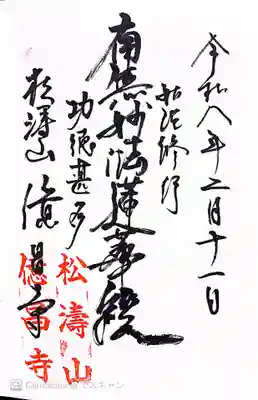 令和八年二月十一日
如説修行
南無妙法蓮華経
功徳甚多
松濤山
松濤山
寺
CamScanner でスキャン